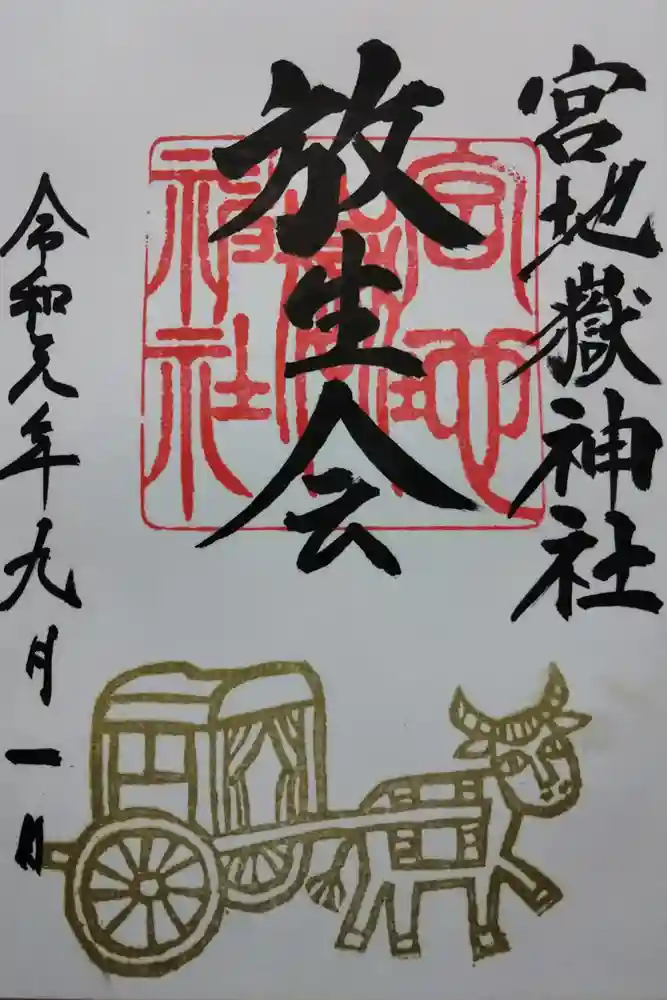 宮地嶽神社
放生会
宮地
嶽
神社
令和元年九月一日